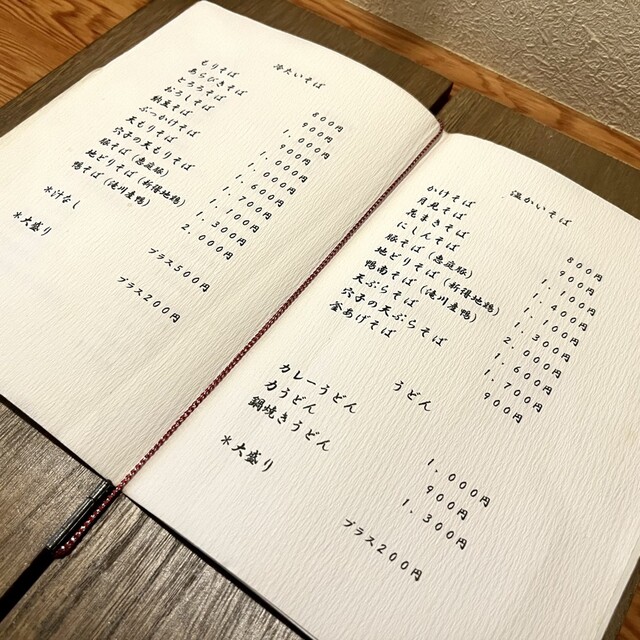 冷たいそば
もりそば 800円
あらびきそば 900円
とろろそば 1,000円
おろしそば 900円
納豆そば 1,000円
ぶっかけそば 1,000円
天もりそば 1,600円
穴子の天もりそば 1,700円
豚そば(恵庭豚) 1,100円
地どりそば(新得地鶏) 1,300円
鴨そば(滝川産鴨) 2,000円
※汁なし プラス500円
※大盛り プラス200円
温かいそば
かけそば 800円
月見そば 900円
花まきそば 1,100円
にしんそば 1,400円
豚そば(恵庭豚) 1,100円
地どりそば(新得地鶏) 1,300円
鴨南そば(滝川産鴨) 2,000円
天ぷらそば 1,600円
穴子の天ぷらそば 1,700円
釜あげそば 900円
うどん
カレーうどん 1,000円
力うどん 900円
鍋焼きうどん 1,300円
※大盛り プラス200円